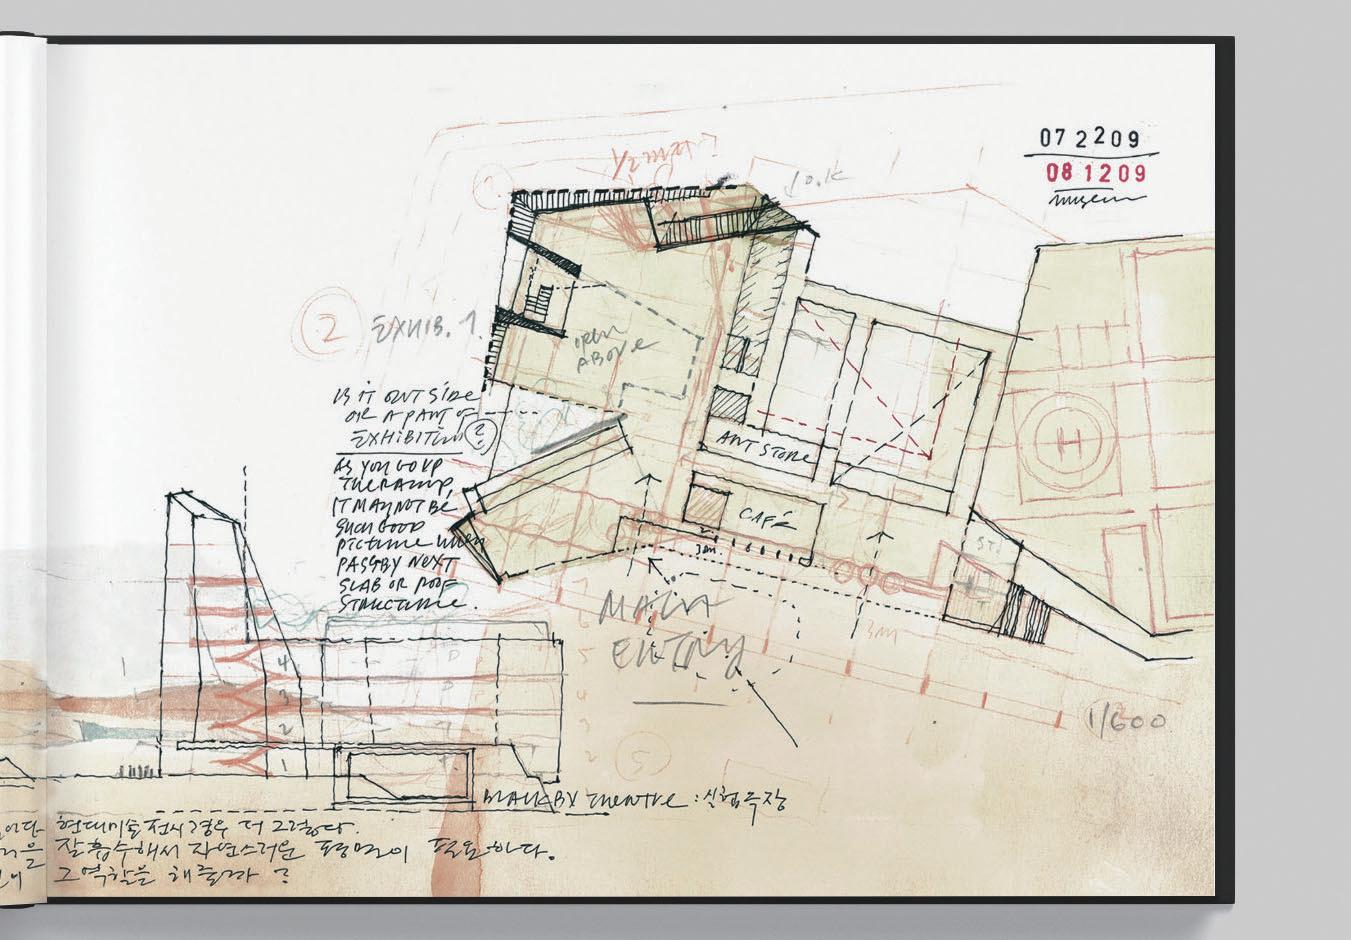 07 22 09
08 12 09
museum
2 EXHIB. 1.
OPEN
ABOVE
IS IT OUTSIDE
OR A PART OF
EXHIBITION 2.
AS YOU GO UP
THE RAMP
IT MAY NOT BE
SUCH GOOD
PICTURE WHEN
PASS BY NEXT
SLAB OR ROOF
STRUCTURE.
ART STORE
CAFÉ
H
3m.
MAIN
ENTRY
3m
1/600
4
3
2
1
5
4
3
2
BLACK BX THEATRE : 실험극장
현대미술 전시 경우 더 그렇다.
잘 흡수해서 자연스러운 평면이 필요하다.
그 역할을 해줄까 ?